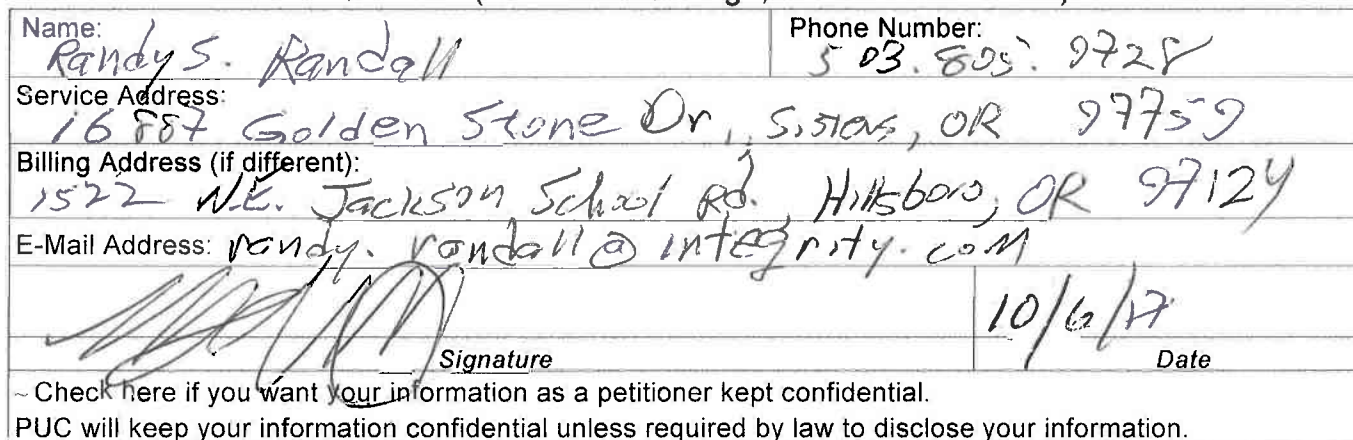 Name:
Randy S. Randall
Phone Number:
503.805.9728
Service Address:
16887 Golden Stone Dr, Sisters, OR 97759
Billing Address (if different):
1522 N.E. Jackson School Rd., Hillsboro, OR 97124
E-Mail Address: randy.randall@integrity.com
10/6/17
Signature
Date
~ Check here if you want your information as a petitioner kept confidential.
PUC will keep your information confidential unless required by law to disclose your information.